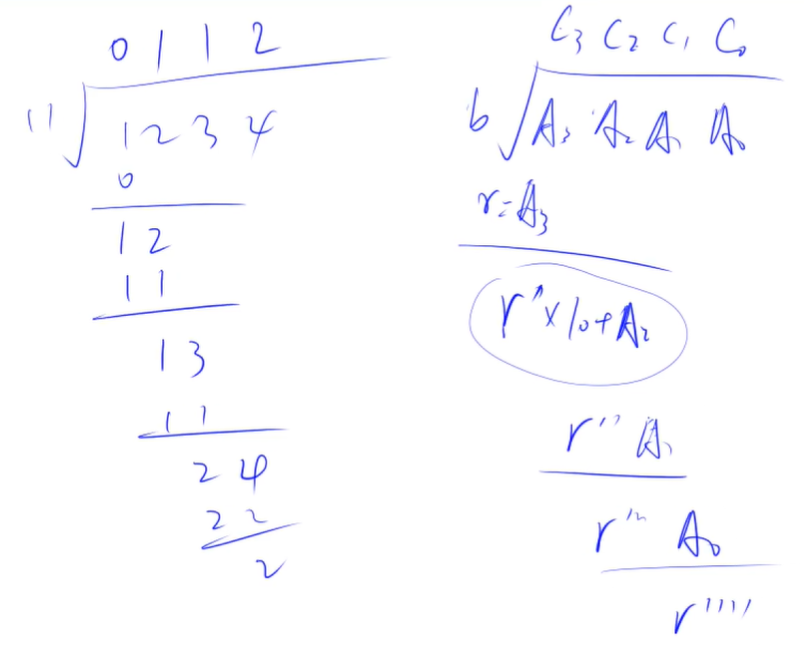 0 1 1 2
11 1 2 3 4
0
1 2
1 1
1 3
1 1
2 4
2 2
2
C₃ C₂ C₁ C₀
b A₃ A₂ A₁ A₀
r=A₃
r'×10+A₂
r'' A₁
r''' A₀
r''''